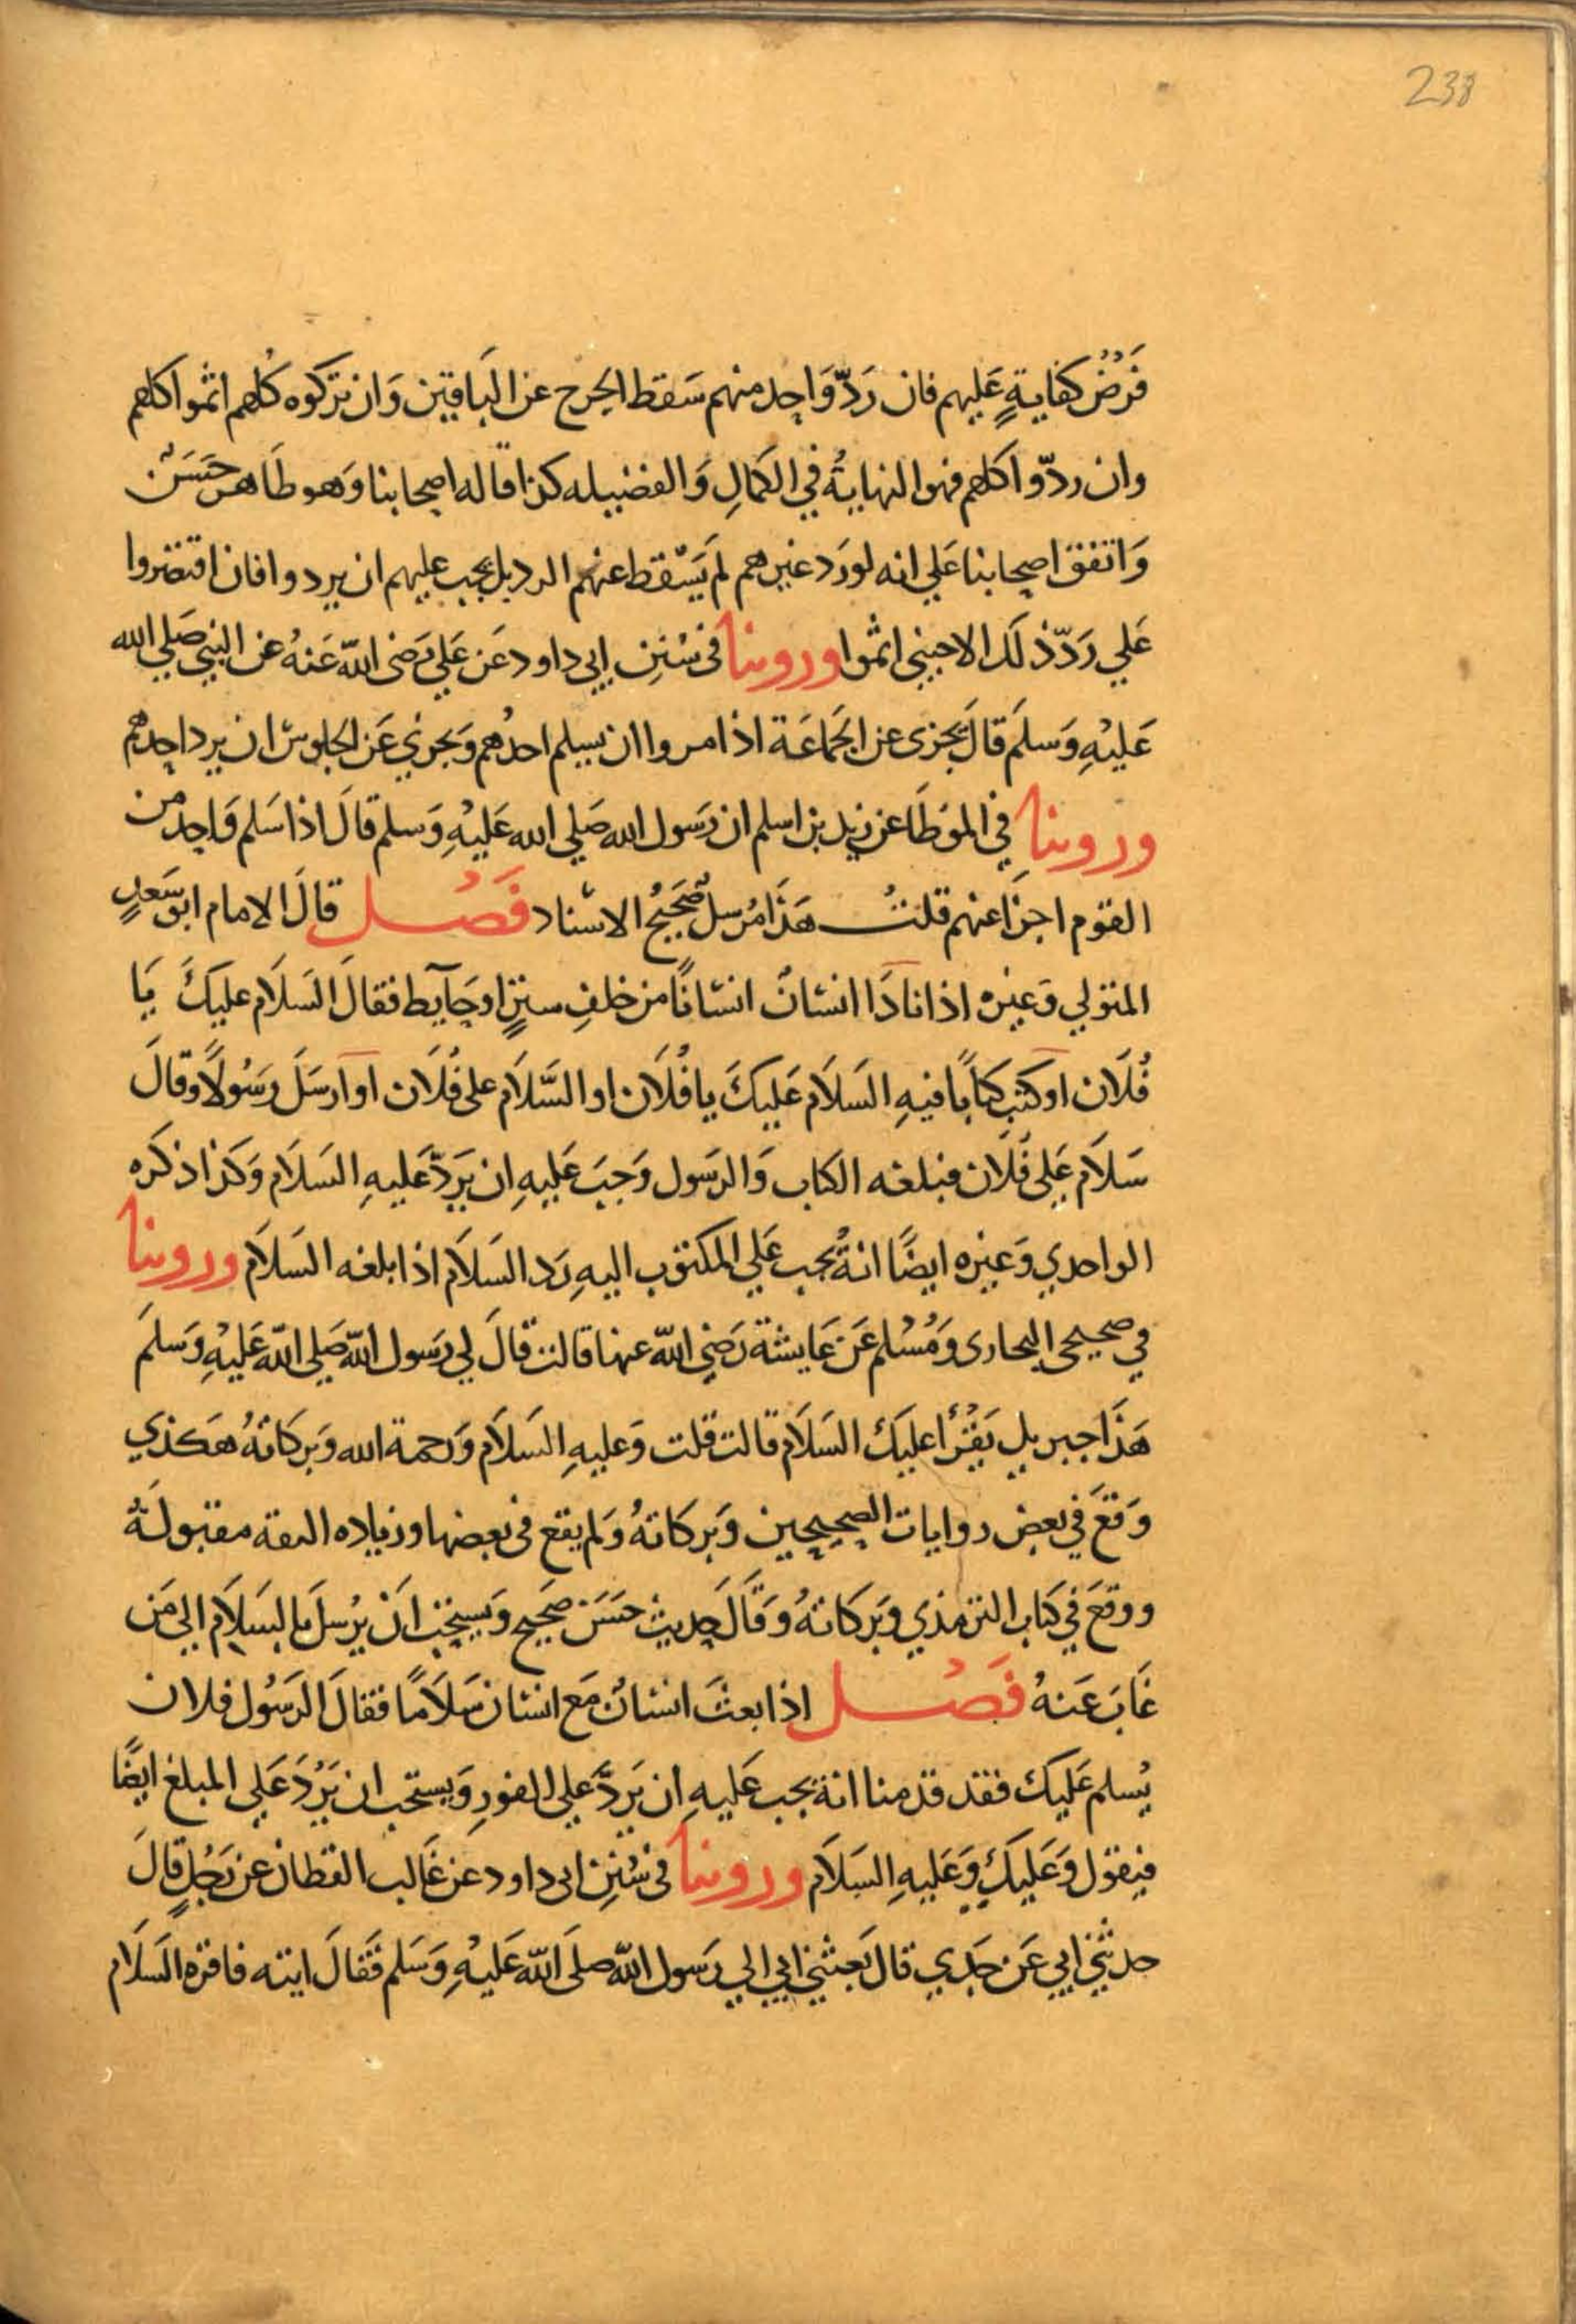 238
فَرْضُ كفايةٍ عَليهم فان رَدّ وَاحِد منهم سَقط الحرج عن البَاقين وَان تركوه كُلهم اثموا كلهم
وان ردّوا كلهم فهو النهايةُ في الكمالِ وَالفضيله كذا قاله اصحابنا وَهو ظَاهر حَسَنٌ
وَاتفق اصحابنا عَلي انه لو رَد غيرهم لم يَسْقط عنهم الرد بل يجب عليهم ان يردوا فان اقتصروا
عَلي رَدّ ذلَك الاجنبي اثموا وروينا في سُننِ ابي داود عَن عَلي رَضى اللّه عَنهُ عن النبي صَلي الله
عَليْهِ وَسلَم قالَ يجزى عن الجَماعَة اذا مروا ان يسلم احدُهم وَيجزي عَن الجلوس ان يرد احِدهم
وروينا في الموَطَا عن زيد بن اسلم ان رَسول الله صَلي الله عَليْهِ وَسلم قالَ اذا سَلم وَاحِد من
القوم اجزَا عنهم قلتُ هَذَا مُرسلٌ صَحيحُ الاسْناد فَصْل قالَ الامام ابو سَعدٍ
المتولي وَغيره اذا نادَا انسَانٌ انسَانًا من خلفِ سِترٍ اوحَآيط فقالَ السَلاَم عليكَ يَا
فُلاَن او كتب كتاَبًا فيهِ السَلاَم عَليكَ يا فُلاَن او السَّلاَم على فُلاَن او آرسَلَ رَسُولاً وقالَ
سَلاَم عَلي فُلاَن فبلغه الكتاب وَالرسَول وَجبَ عَليهِ ان يَردّ عَليهِ السَلاَم وَكذا ذكَره
الواحدي وَغيره ايضًا انهُ يجب عَلي المكتوب اليهِ رَد السَلاَم اذا بلغه السَلاَم وروينا
في صحيحي البخارى وَمُسْلم عَن عَايشة رَضِي اللّه عنها قالت قالَ لي رَسول اللّه صَلي اللّه عَليْهِ وَسلمَ
هَذَا جبريل يَقْرُأ عليَك السَلاَم قالت قلت وَعليهِ السَلاَم وَرحمة الله وَبركاتهُ هَكذي
وَقعَ في بعض روايات الصحِيحِين وَبركاتهُ وَلم يقع فى بعضها وزياده الثقة مقبولَةٌ
ووقعَ في كتَاب الترمذي وَبركاتهُ وَقَالَ حِديث حسَن صَحيح وَيستحَب انْ يرُسلَ بالسَلاَم الي مَن
غَابَ عَنهُ فَصْل اذا بعثَ انسَانٌ مَع انسَان سَلاَمًا فقالَ الرَسُول فلان
يُسلم عَليكَ فقد قدمنا انهُ يجب عَليهِ ان يَردَّ علي الفورِ وَيستحب ان يَرُدَ عَلي المبلغ ايضًا
فيقول وَعَليكَ وَعَليهِ السَلاَم وروينا في سُننِ ابى داود عَن غَالب القطان عن رَجُلٍ قالَ
حدثني ابي عَن جَدي قال بَعثني ابي الي رَسول اللّه صلَى اللّه عَليْهِ وَسَلم فَقالَ ايته فاقره السَلاَم